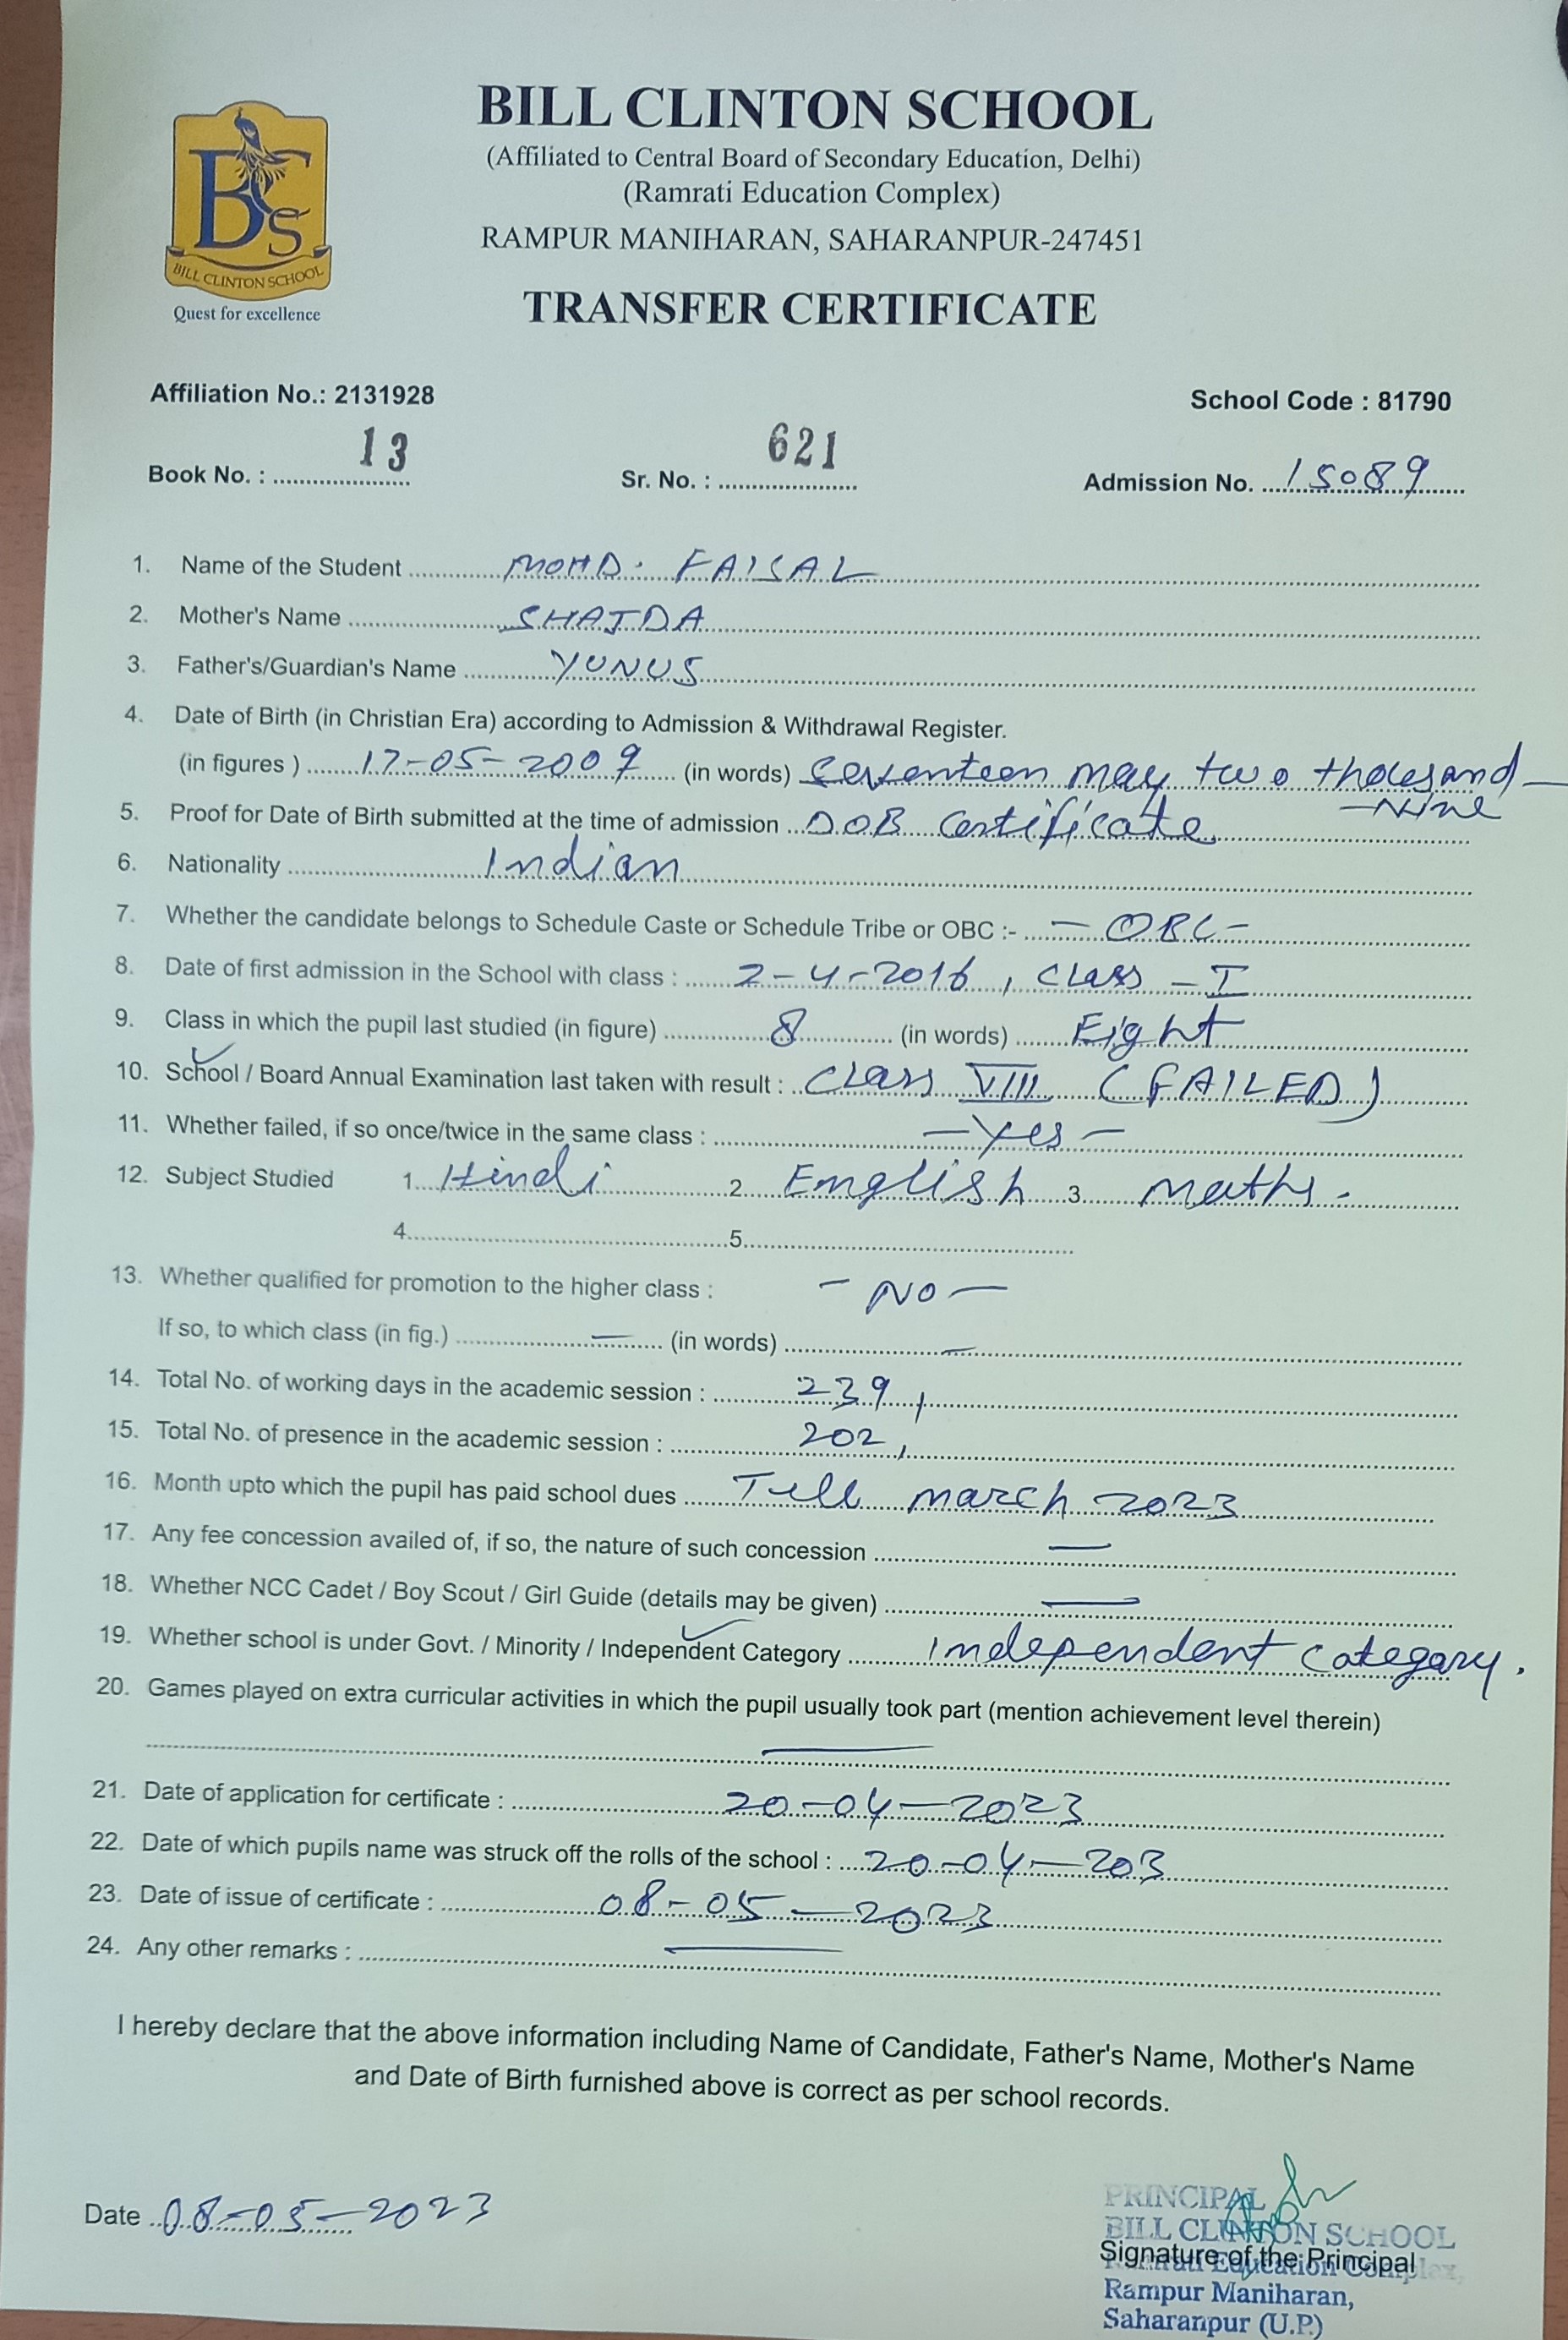 BILL CLINTON SCHOOL
(Affiliated to Central Board of Secondary Education, Delhi)
(Ramrati Education Complex)
RAMPUR MANIHARAN, SAHARANPUR-247451
BCS
BILL CLINTON SCHOOL
Quest for excellence
TRANSFER CERTIFICATE
Affiliation No.: 2131928 School Code : 81790
Book No. : 13 Sr. No. : 621 Admission No. 15089
1. Name of the Student MOHD. FAISAL
2. Mother's Name SHAJDA
3. Father's/Guardian's Name YUNUS
4. Date of Birth (in Christian Era) according to Admission & Withdrawal Register.
(in figures ) 17-05-2009 (in words) Seventeen may two thousand —
— Nine
5. Proof for Date of Birth submitted at the time of admission DOB Certificate
6. Nationality Indian
7. Whether the candidate belongs to Schedule Caste or Schedule Tribe or OBC :- — OBC —
8. Date of first admission in the School with class : 2-4-2016, Class - I
9. Class in which the pupil last studied (in figure) 8 (in words) Eight
10. School / Board Annual Examination last taken with result : Class VIII (FAILED)
11. Whether failed, if so once/twice in the same class : — Yes —
12. Subject Studied 1. Hindi 2. English 3. Maths.
4. 5.
13. Whether qualified for promotion to the higher class : - NO —
If so, to which class (in fig.) — (in words) —
14. Total No. of working days in the academic session : 239,
15. Total No. of presence in the academic session : 202,
16. Month upto which the pupil has paid school dues Till march 2023
17. Any fee concession availed of, if so, the nature of such concession —
18. Whether NCC Cadet / Boy Scout / Girl Guide (details may be given) —
19. Whether school is under Govt. / Minority / Independent Category Independent category.
20. Games played on extra curricular activities in which the pupil usually took part (mention achievement level therein)
—
21. Date of application for certificate : 20-04-2023
22. Date of which pupils name was struck off the rolls of the school : 20-04-203
23. Date of issue of certificate : 08-05-2023
24. Any other remarks : —
I hereby declare that the above information including Name of Candidate, Father's Name, Mother's Name
and Date of Birth furnished above is correct as per school records.
Date 08-05-2023
PRINCIPAL
BILL CLINTON SCHOOL
Signature of the Principal
Ramrati Education Complex,
Rampur Maniharan,
Saharanpur (U.P.)